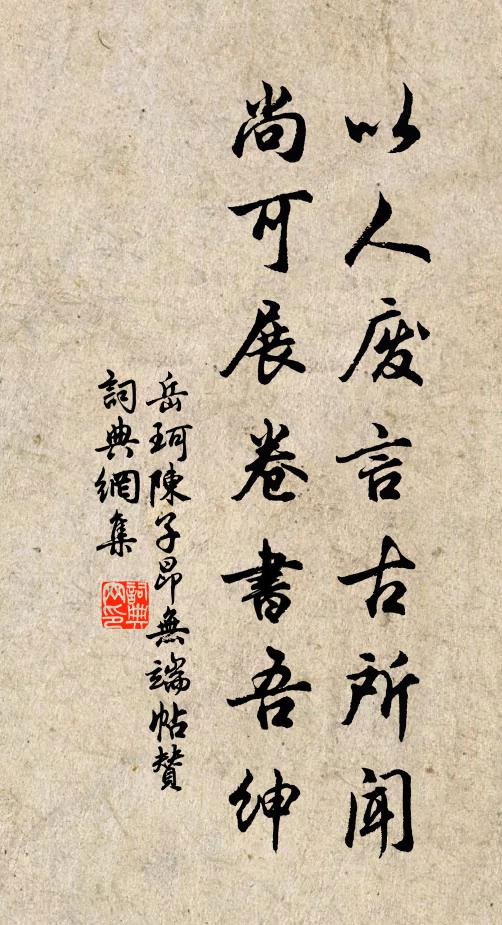 以人廢言古所聞
尚可展卷書吾紳
岳珂陳子昂無端帖贊
詞典網集
詞典
网印